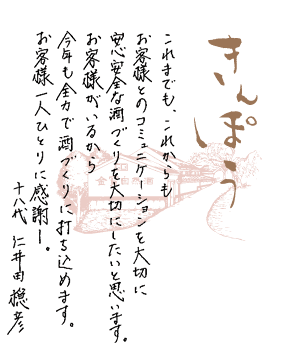 きんぽう
これまでも、これからも
お客様とのコミュニケーションを大切に
安心安全な酒づくりを大切にしたいと思います。
お客様がいるから
今年も全力で酒づくりに打ち込めます。
お客様一人ひとりに感謝ー。
十八代 仁井田穏彦